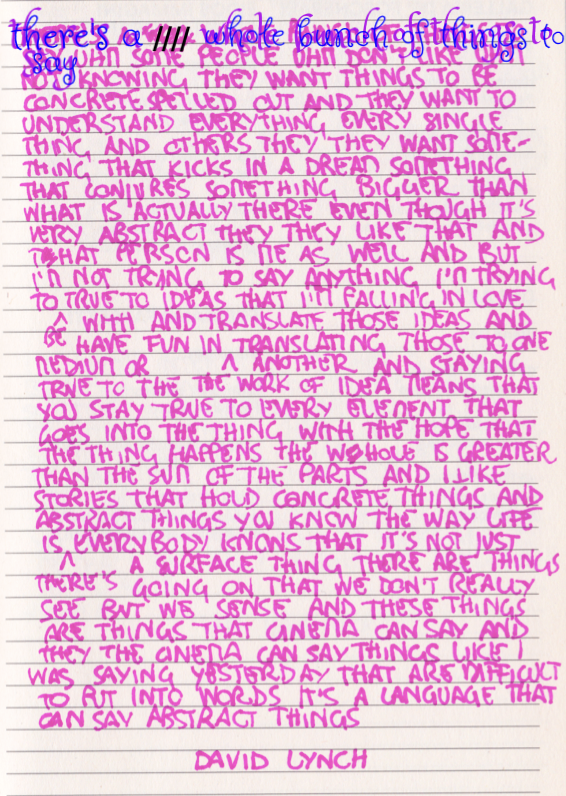 there's a whole bunch of things to
say
SOME PEOPLE UHM DON'T LIKE
NOT KNOWING THEY WANT THINGS TO BE
CONCRETE SPELLED OUT AND THEY WANT TO
UNDERSTAND EVERYTHING EVERY SINGLE
THING AND OTHERS THEY THEY WANT SOME-
THING THAT KICKS IN A DREAM SOMETHING
THAT CONJURES SOMETHING BIGGER THAN
WHAT IS ACTUALLY THERE EVEN THOUGH IT'S
VERY ABSTRACT THEY THEY LIKE THAT AND
THAT PERSON IS ME AS WELL AND BUT
I'M NOT TRYING TO SAY ANYTHING I'M TRYING
TO TRUE TO IDEAS THAT I'M FALLING IN LOVE
^ WITH AND TRANSLATE THOSE IDEAS AND
BE HAVE FUN IN TRANSLATING THOSE TO ONE
MEDIUM OR ^ ANOTHER AND STAYING
TRUE TO THE THE WORK OF IDEA MEANS THAT
YOU STAY TRUE TO EVERY ELEMENT THAT
GOES INTO THE THING WITH THE HOPE THAT
THE THING HAPPENS THE WHOLE IS GREATER
THAN THE SUM OF THE PARTS AND I LIKE
STORIES THAT HOLD CONCRETE THINGS AND
ABSTRACT THINGS YOU KNOW THE WAY LIFE
IS EVERYBODY KNOWS THAT IT'S NOT JUST
^ A SURFACE THING THERE ARE THINGS
THERE'S GOING ON THAT WE DON'T REALLY
SEE BUT WE SENSE AND THESE THINGS
ARE THINGS THAT CINEMA CAN SAY AND
THEY THE CINEMA CAN SAY THINGS LIKE I
WAS SAYING YESTERDAY THAT ARE DIFFICULT
TO PUT INTO WORDS IT'S A LANGUAGE THAT
CAN SAY ABSTRACT THINGS
DAVID LYNCH